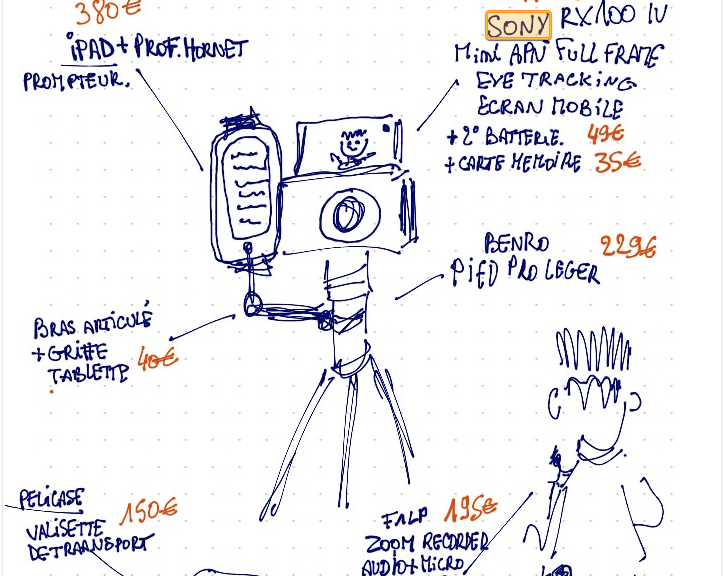 380€
iPAD + PROF. HORNET
PROMPTEUR.
SONY RX100 IV
Mini APN FULL FRAME
EYE TRACKING
ECRAN MOBILE
+ 2° BATTERIE. 49€
+ CARTE MEMOIRE 35€
BENRO 229€
PIED PRO LEGER
BRAS ARTICULÉ
+ GRIFFE 40€
TABLETTE
PELICASE 150€
VALISETTE
DETRAANSPORT
195€
ZOOM RECORDER
AUDIO + MICRO